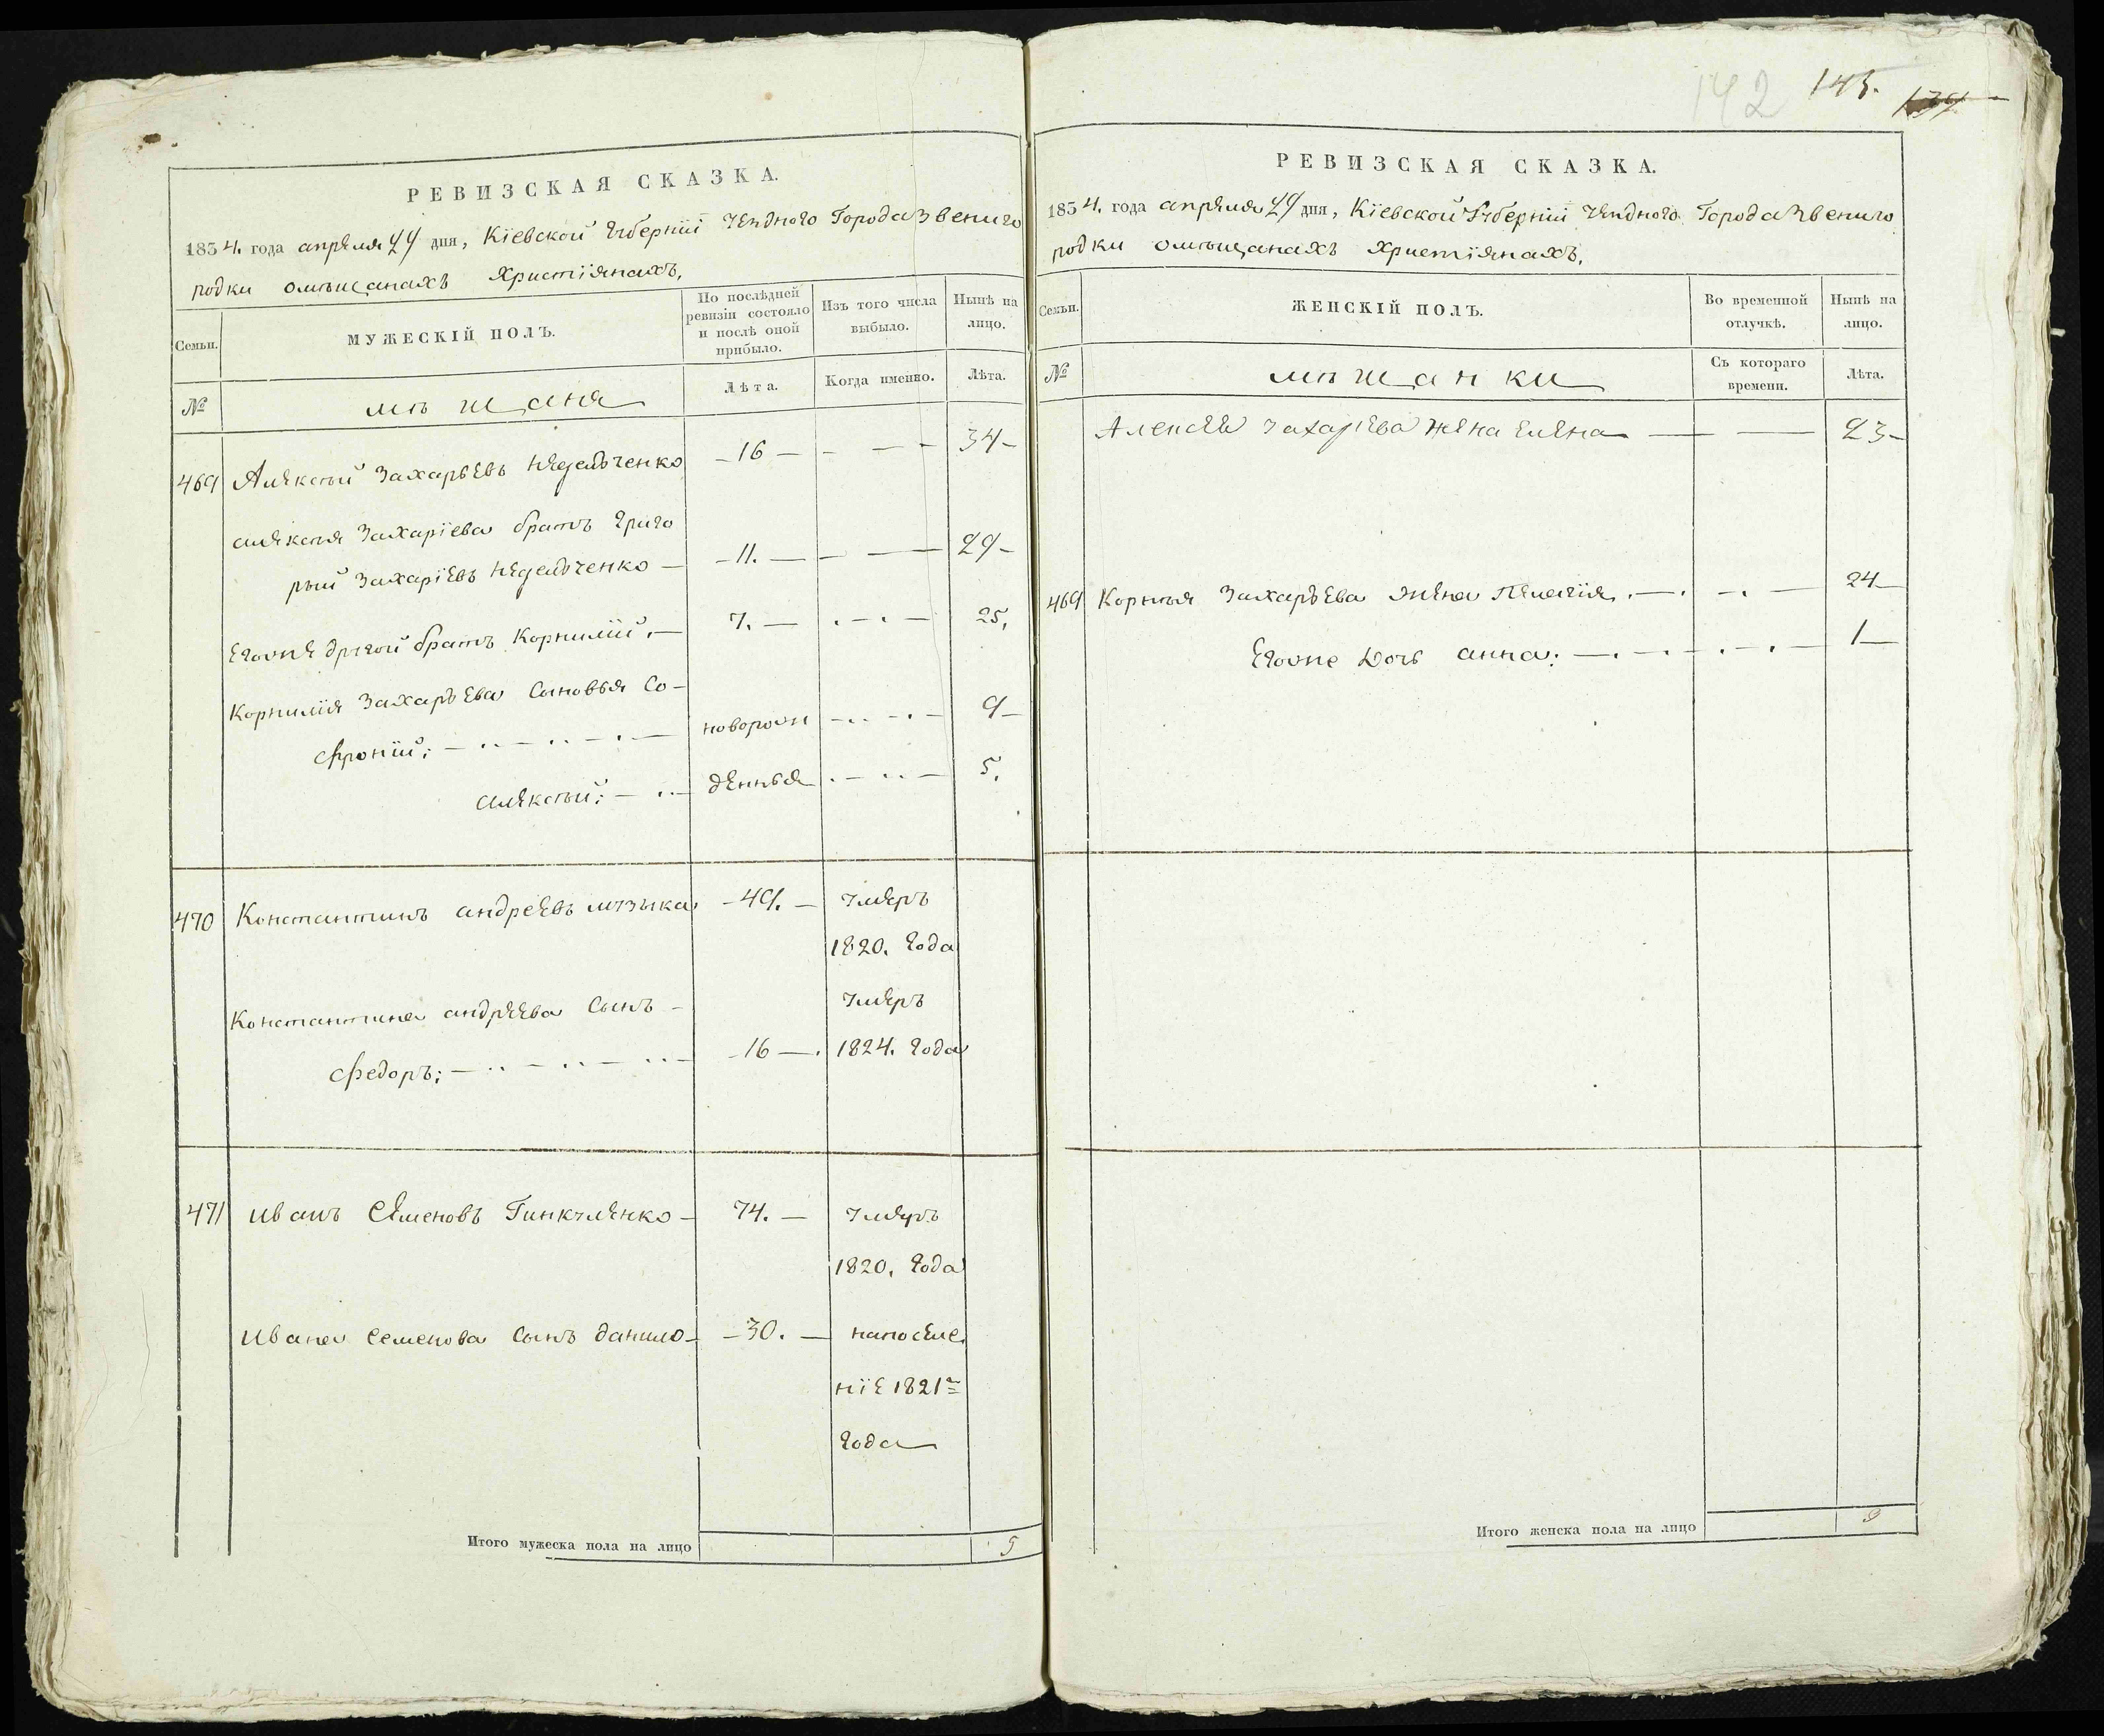 РЕВИЗСКАЯ СКАЗКА.
1834. года апреля 29 дня, Кіевской Губерніи уезднаго Города Звениго
родки омещанахъ Христіянахъ.
Семьи.
МУЖЕСКІЙ ПОЛЪ.
По послѣдней ревизіи состояло и послѣ оной прибыло.
Изъ того числа выбыло.
Нынѣ на лицо.
№
мещаня
Лѣта.
Когда именно.
Лѣта.
469 Алексей Захарьевъ Недельченко -16 — - — - 34-
алексея Захаріева братъ Григо
рый Захаріевъ Недельченко — -11. — — — 29-
Егоже другой братъ Корнилій. — 7. — . - . - 25.
Корнилія Захарьева Сыновья Со-
фроній; — .. — .. — . — новорож — .. — . — 9-
алексей; — .. — денныя . — .. — 5.
470 Константинъ андреевъ музыка -49. — умеръ
1820. года
Константина андреева Сынъ - умеръ
Федоръ; — .. — .. — ... — -16 — . 1824. года
471 иванъ Семеновъ Гинкуленко - 74. — умеръ
1820. года
ивана Семенова Сынъ данило - -30. — напоселе
ніе 1821го
года
Итого мужеска пола на лицо 5
142 145.
РЕВИЗСКАЯ СКАЗКА.
1834. года апреля 29 дня, Кіевской Губерніи уезднаго Города Звениго
родки омещанахъ Христіянахъ.
Семьи.
ЖЕНСКІЙ ПОЛЪ.
Во временной отлучкѣ.
Нынѣ на лицо.
№
мещанки
Съ котораго времени.
Лѣта.
Алексея Захаріева жена Елена — — 23-
469 Корнилія Захарьева жена Пелагія. — . — . — 24—
Егоже дочь анна; — . — . — . — 1—
Итого женска пола на лицо